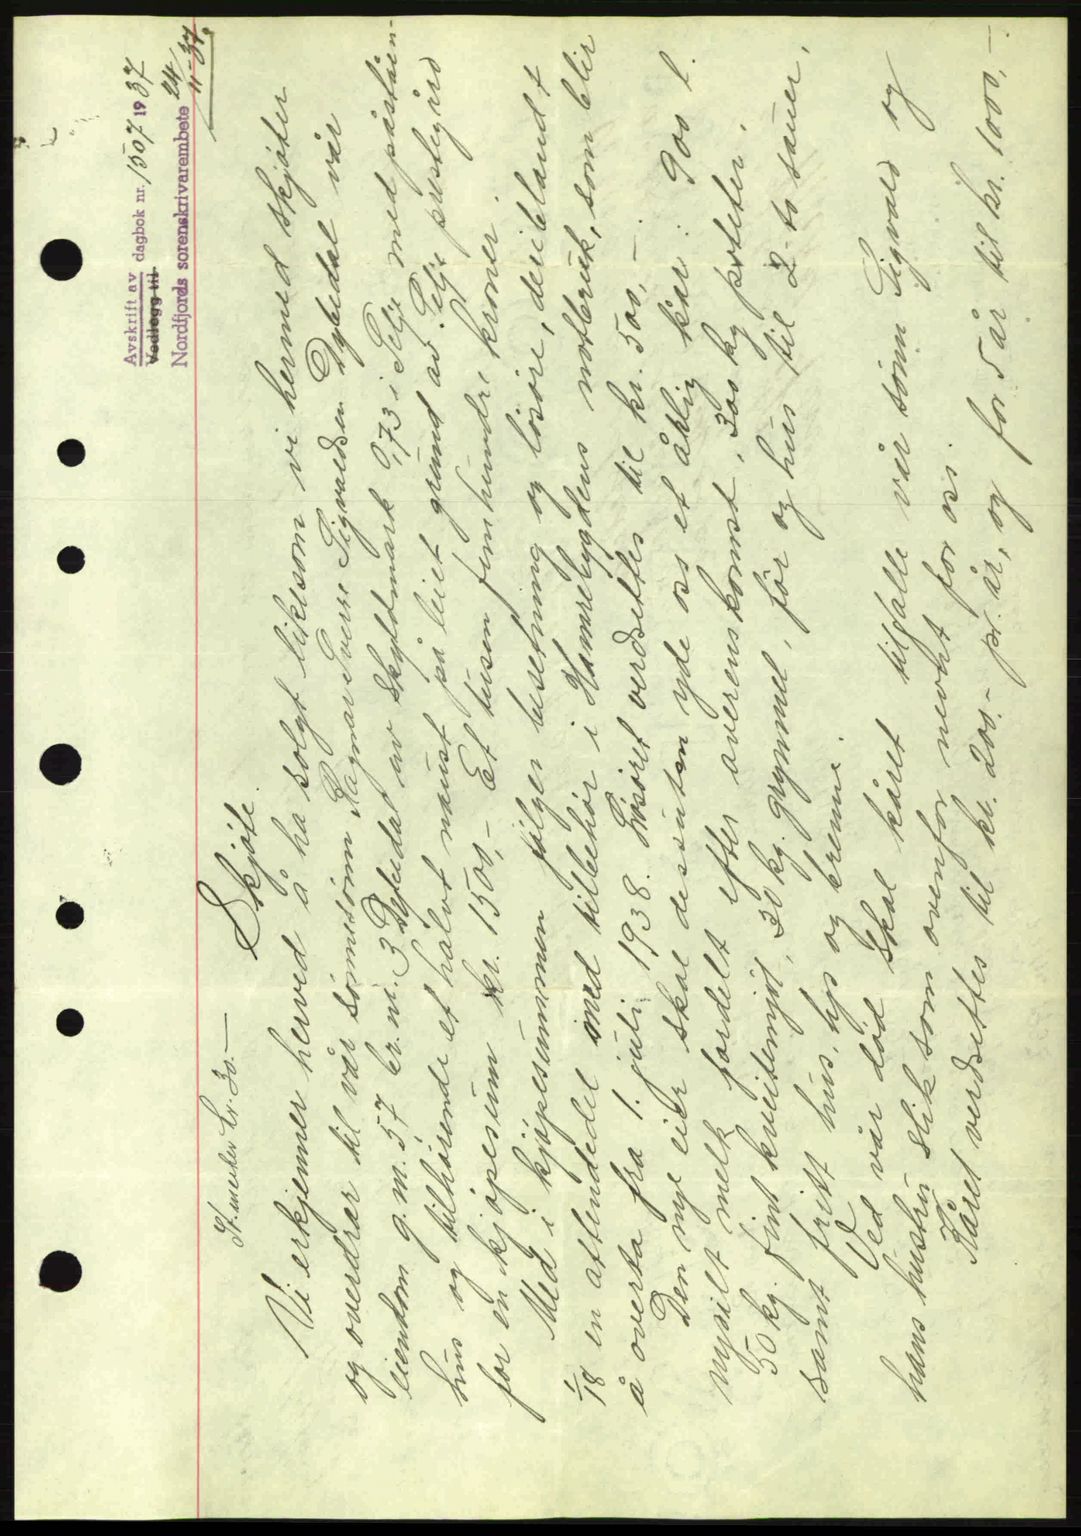 Avskrift av dagbok nr. 1507 1937
Vedlegg til
Nordfjords sorenskrivarembete 24/11-37.
St.merker kr. 30.-
Skjöte.
Vi erkjenner herved å ha solgt liksom vi hermed skjöter
og overdrar til vår sönnesönn Ragnar Sverre Sigvaldsen Dybedal vår
eiendom g.nr. 57 br.nr. 3 Dybedal av skyldmark 0,73 i Selje med påståen-
hus og tilhörende et halvt naust på leiet grunn av Selje prestegård
for en kjöpesum kr. 1500,- Et tusen femhundre kroner.
Med i kjöpesummen fölger besetning og lösöre, deriblandt
1/18 en attendedel med tilbehör i Hamrebygdens notbruk, som blir
å overta fra 1. juli 1938. Lösöret verdsettes til kr. 500,-.
Den nye eier skal desuten yde oss et årlig kår: 900 l.
nysilt melk fordelt efter överenskomst, 300 kg poteter,
50 kg. fint kveitemjöl, 30 kg. grynmel, för og hus til 2 - to sauer,
samt fritt hus, lys og brenne.
Ved vår död skal kåret tilfalle vår sönn Sigvald og
hans hustru slik som ovenfor nevnt for oss.
Kåret verdsettes til kr. 200.- pr. år, og for 5 år til kr. 1000,-.